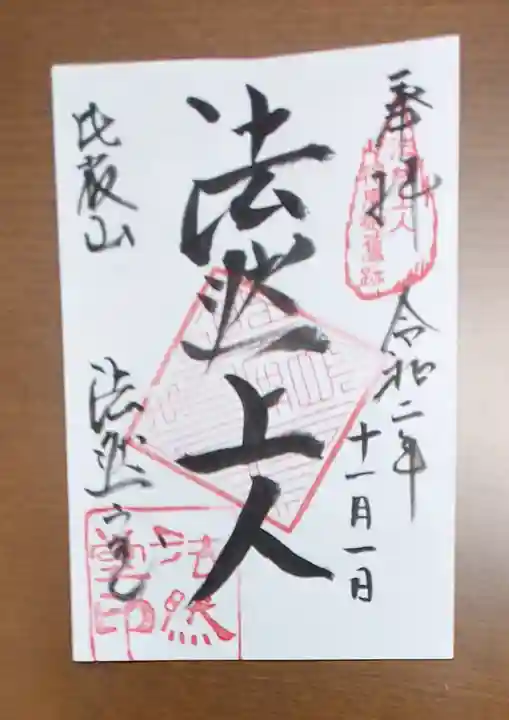 奉拝
令和二年
十一月一日
法然上人
比叡山
法然堂
法然
堂印